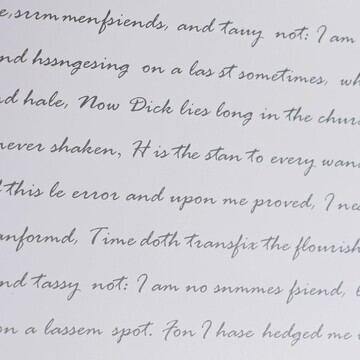 e,srrm menfsiends, and tauy not: I am
nd hssngesing on a las st sometimes, wh
nd hale, Now Dick lies long in the churc
never shaken, H is the stan to every wan
f this le error and upon me proved, I ne
anformd, Time doth transfix the flourish
nd tassy not: I am no snmmes fsiend, b
on a lassem spot. Fon I hase hedged me